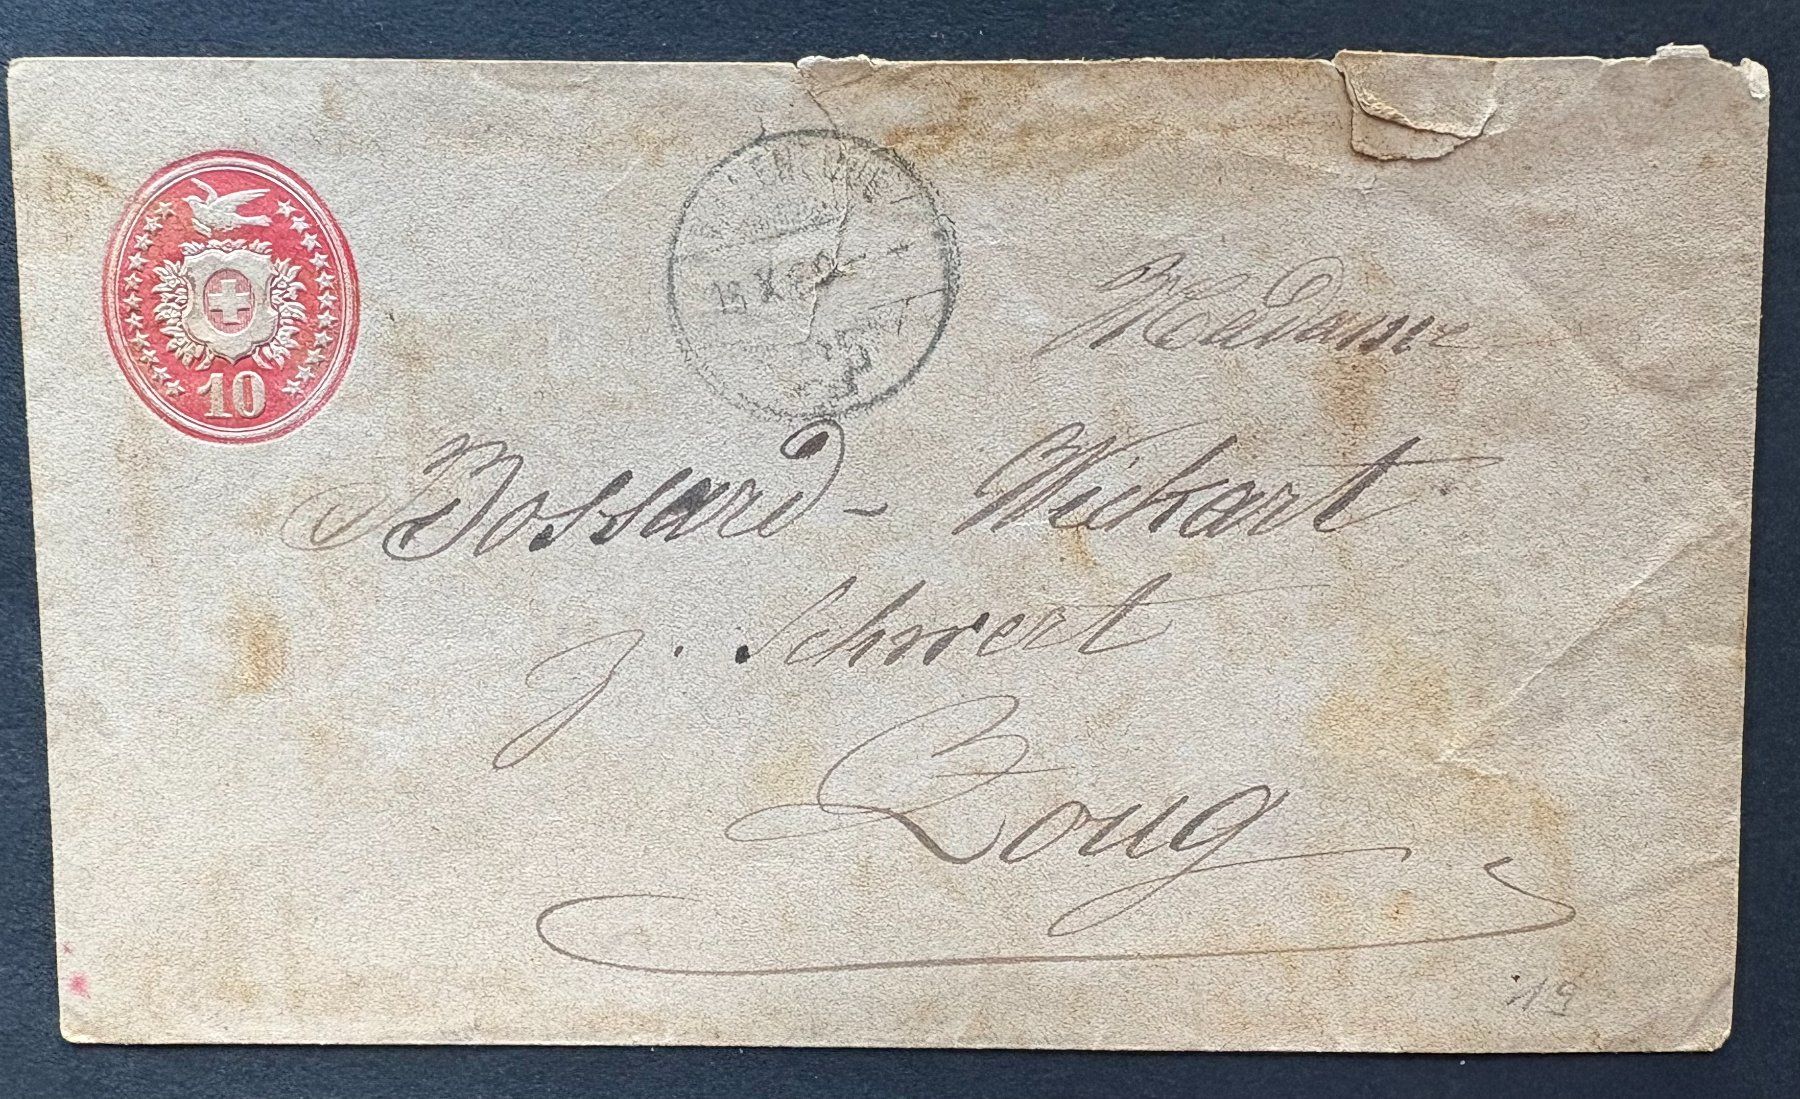 10
Madame
Bossard - Wickart
z. Schwert
Zoug
19